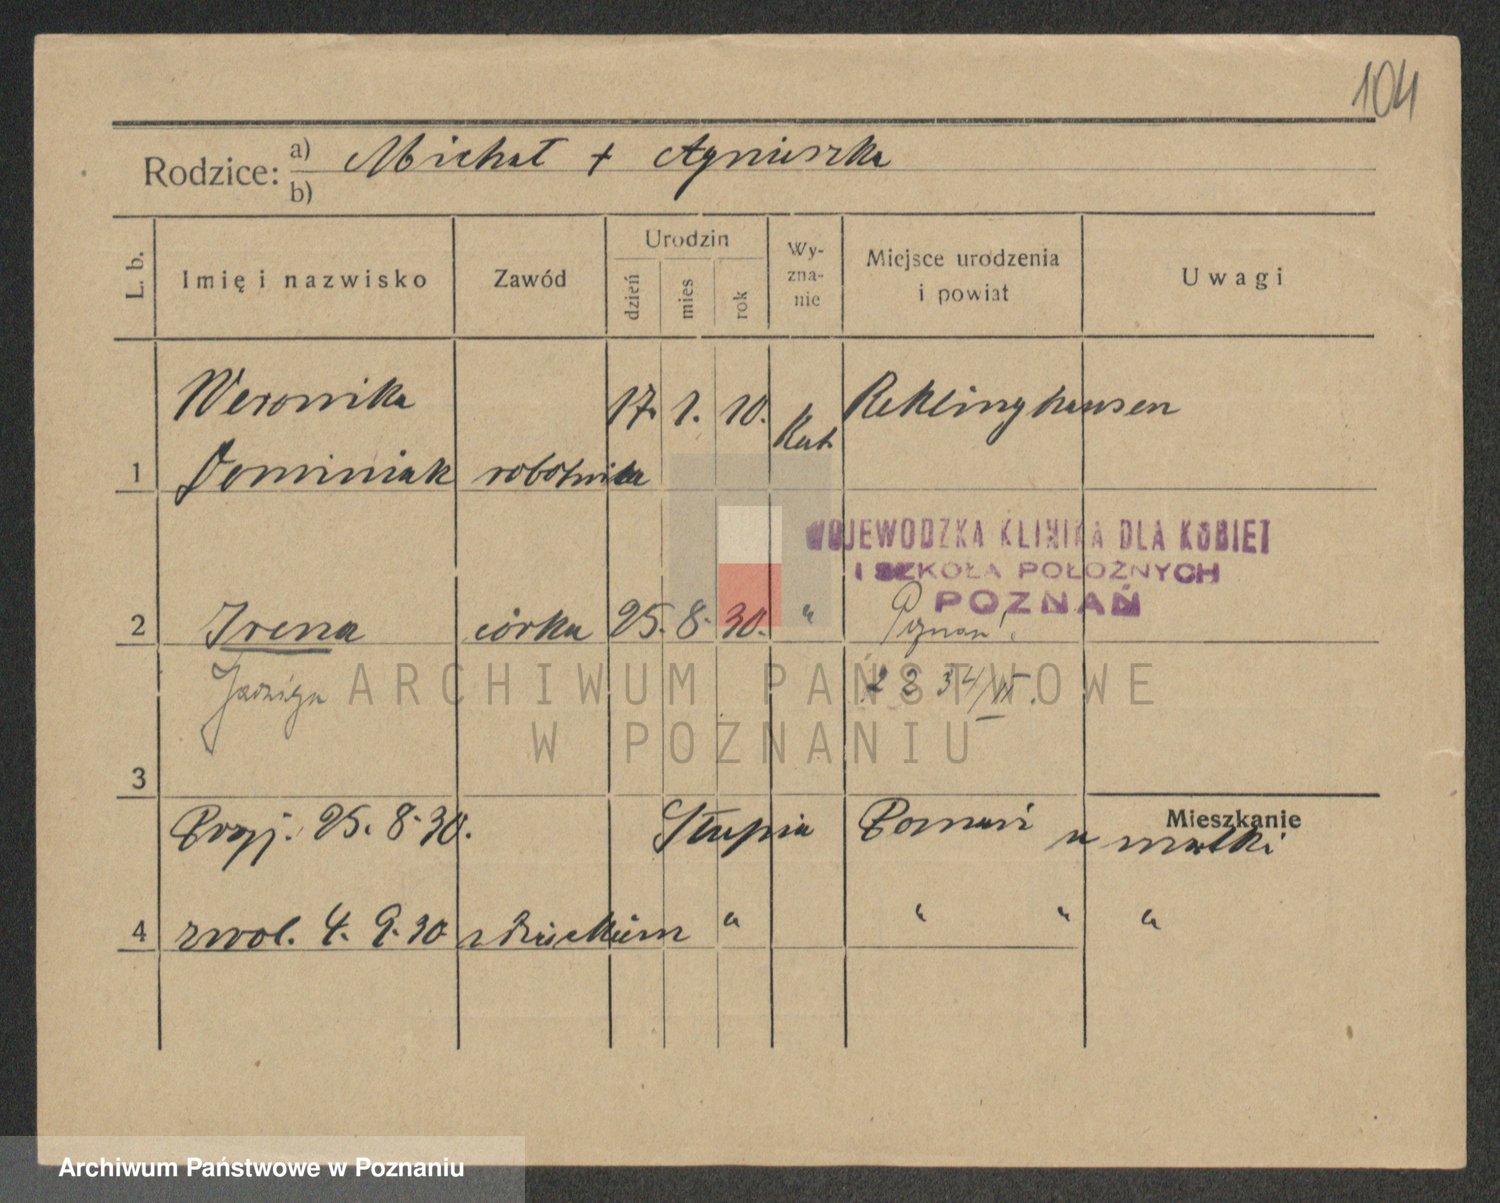 104
Rodzice: a) Michał + Agnieszka
b)
L. b. Imię i nazwisko Zawód Urodzin dzień mies rok Wy-zna-nie Miejsce urodzenia i powiat Uwagi
Weronika 17. 1. 10. Kat. Reklinghausen
1 Dominiak robotnika
WOJEWODZKA KLINIKA DLA KOBIET
I SZKOŁA POŁOŻNYCH
POZNAŃ
2 Irena córka 25. 8. 30. " Poznań
Jadwiga
ARCHIWUM PAŃSTWOWE
W POZNANIU
3
Mieszkanie
Przyj. 25. 8. 30. Słupia Poznań u matki
4 zwol. 4. 9. 30 z dzieckiem " " " "
Archiwum Państwowe w Poznaniu